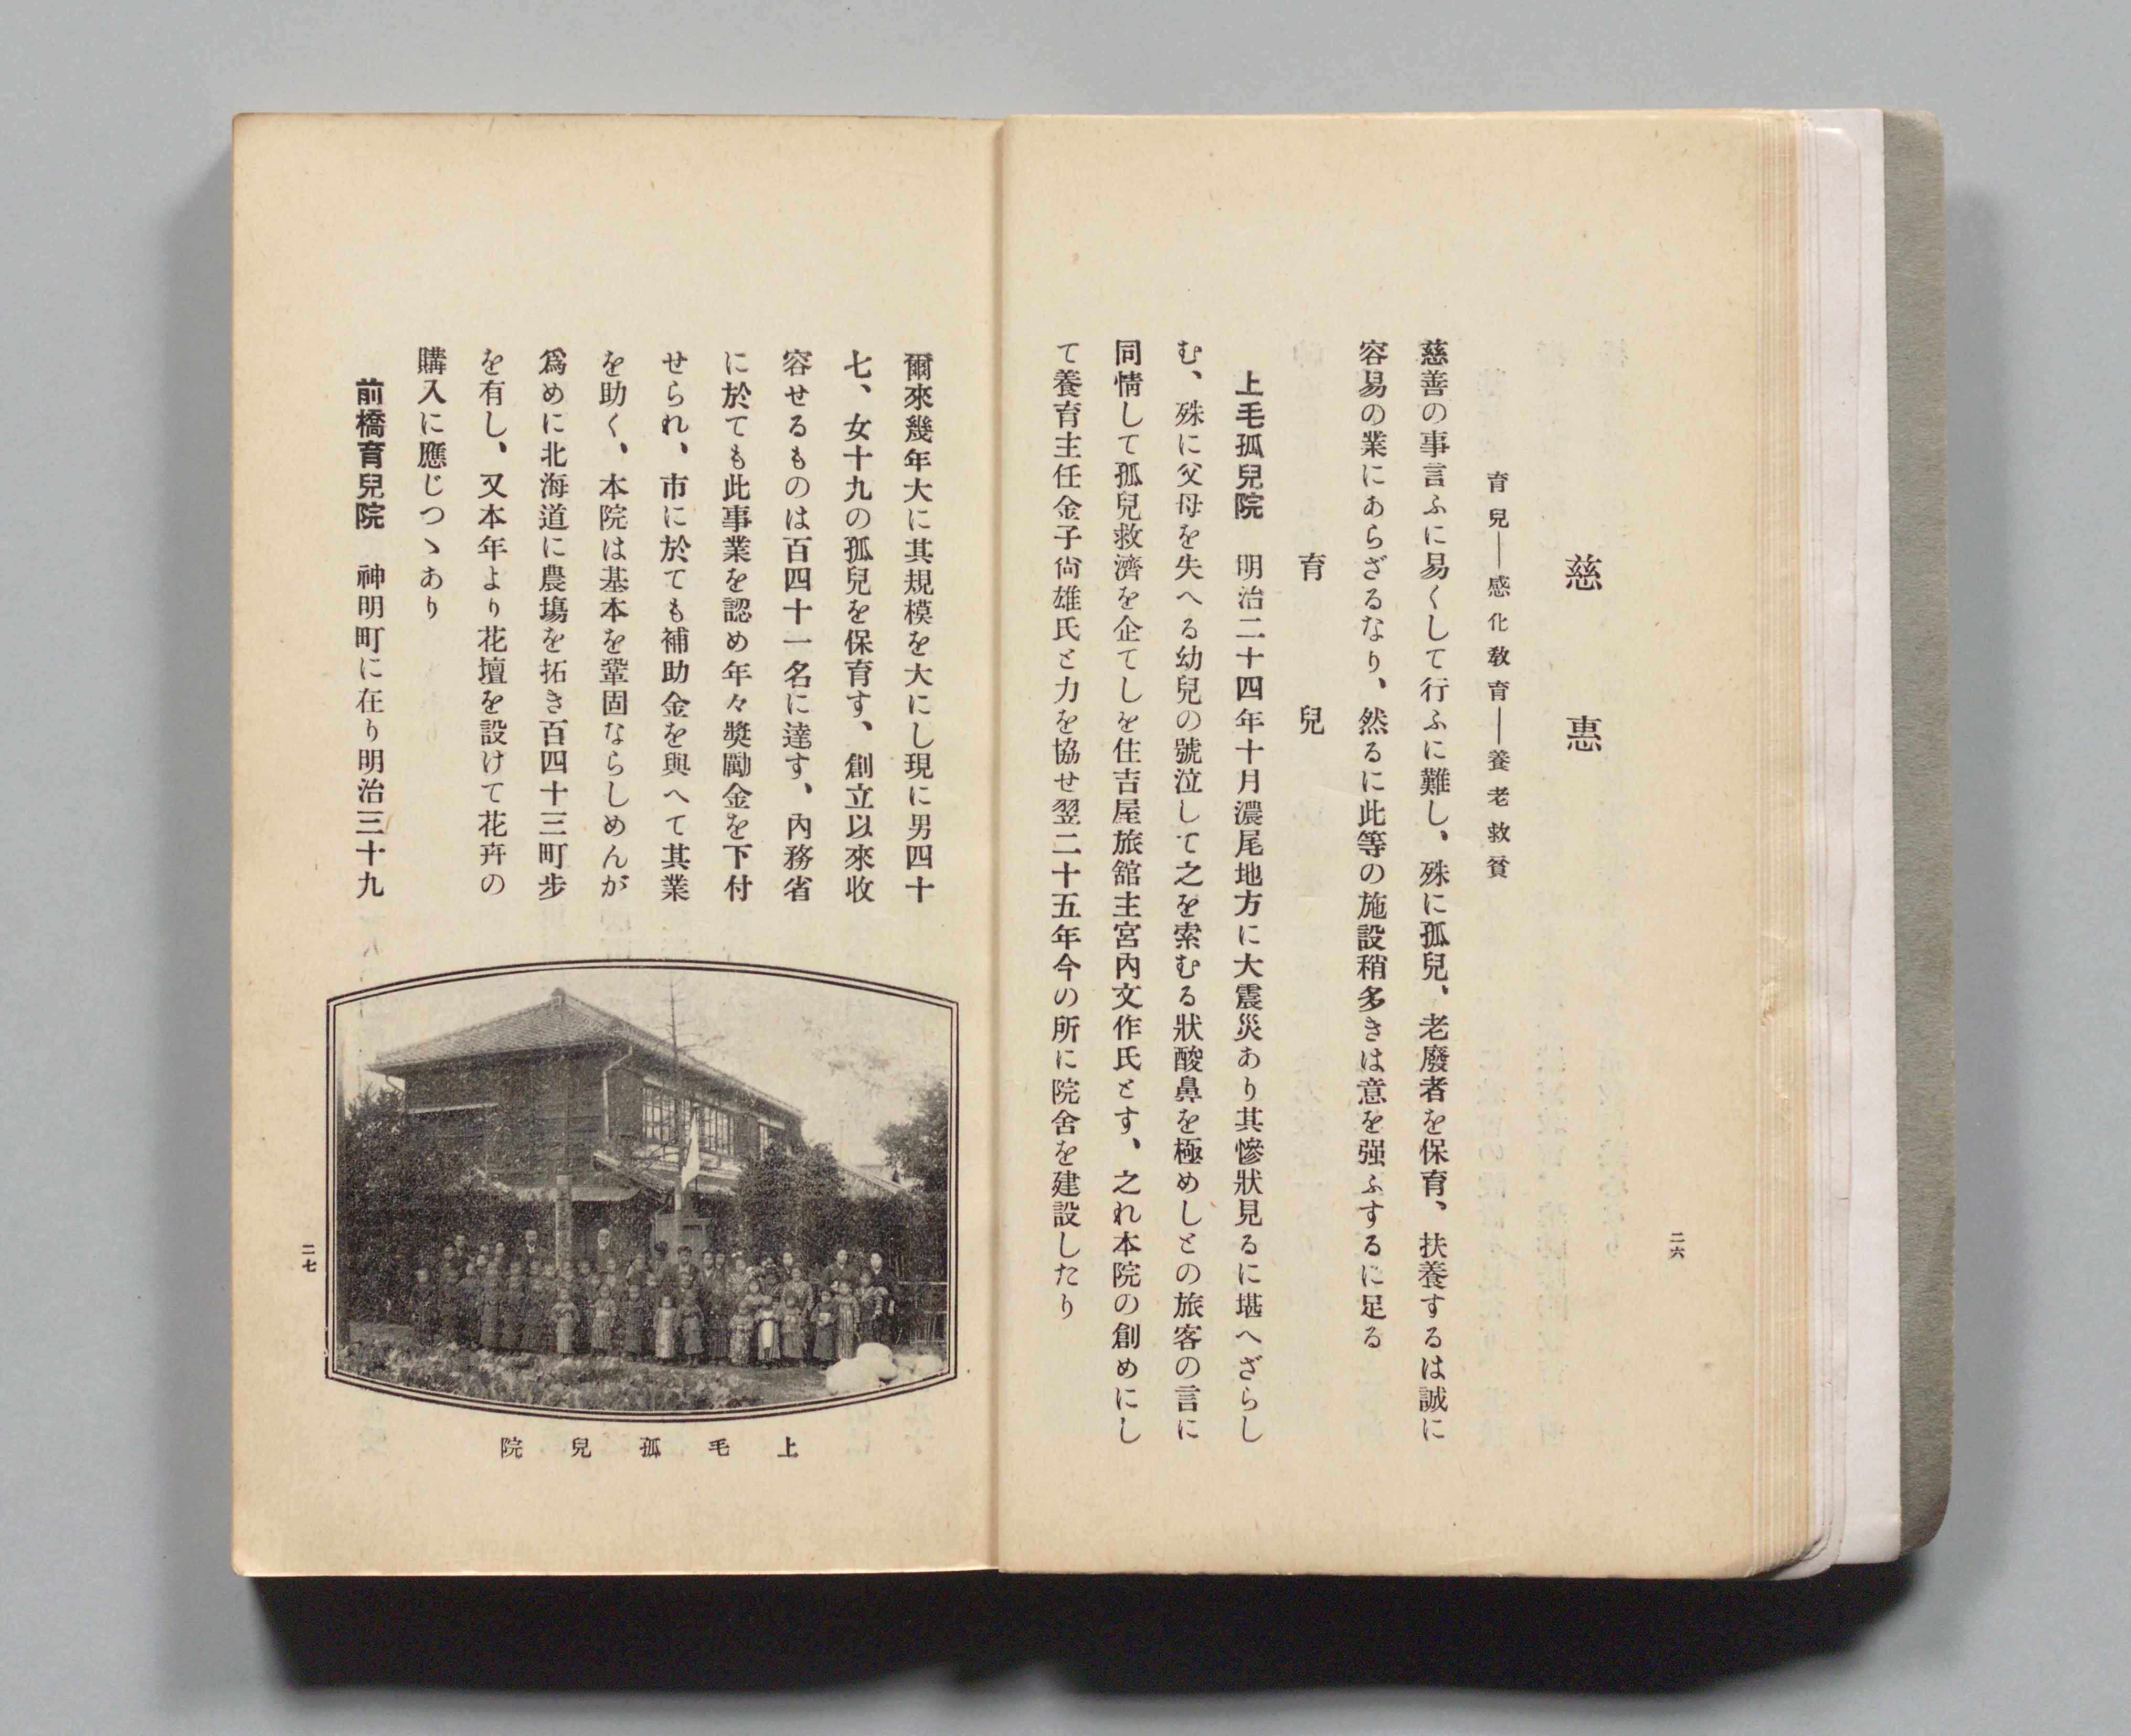 慈惠
育兒―感化敎育―養老救貧
慈善の事言ふに易くして行ふに難し、殊に孤兒、老廢者を保育、扶養するは誠に
容易の業にあらざるなり、然るに此等の施設稍多きは意を强ふするに足る
育兒
上毛孤兒院　明治二十四年十月濃尾地方に大震災あり其慘狀見るに堪へざらし
む、殊に父母を失へる幼兒の號泣して之を索むる狀酸鼻を極めしとの旅客の言に
同情して孤兒救濟を企てしを住吉屋旅舘主宮內文作氏とす、之れ本院の創めにし
て養育主任金子尙雄氏と力を協せ翌二十五年今の所に院舍を建設したり
二六
爾來幾年大に其規模を大にし現に男四十
七、女十九の孤兒を保育す、創立以來收
容せるものは百四十一名に達す、內務省
に於ても此事業を認め年々奬勵金を下付
せられ、市に於ても補助金を與へて其業
を助く、本院は基本を鞏固ならしめんが
爲めに北海道に農塲を拓き百四十三町步
を有し、又本年より花壇を設けて花卉の
購入に應じつゝあり
前橋育兒院　神明町に在り明治三十九
上毛孤兒院
二七